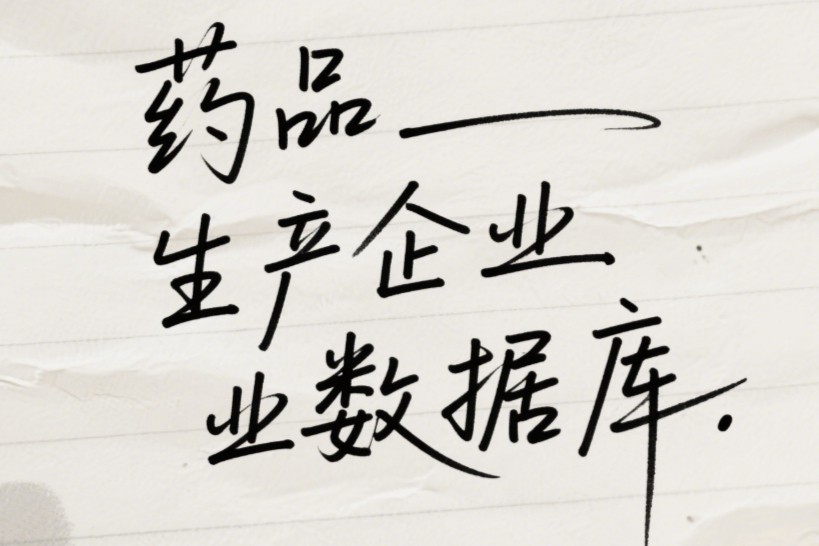 药品一
生产企业
业数据库.